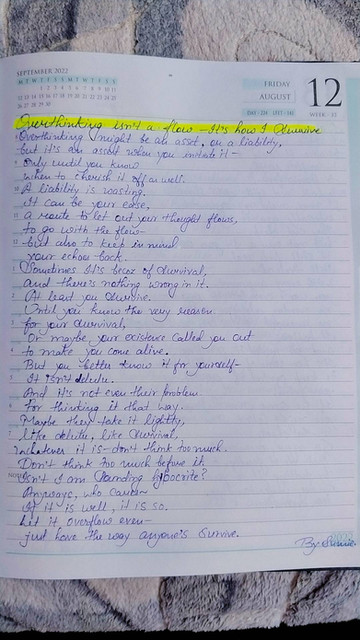 SEPTEMBER 2022
M T W T F S S M T W T F S S
1 2 3 4 5 6 7 8 9 10 11
12 13 14 15 16 17 18 19 20 21 22 23 24 25
26 27 28 29 30
FRIDAY
AUGUST
12
WEEK - 32
Overthinking isn't a flow - It's how I Survive
Overthinking might be an asset, or a liability,
but it's an asset when you initiate it -
Only until you know
when to cherish it off as well.
A liability is wasting.
It can be your ease,
A route to let out your thought flows,
to go with the flow-
but also to keep in mind
your echow back.
Sometimes It's becoz of Survival,
and there's nothing wrong in it.
At least you Survive.
Until you know the very reason
for your Survival,
Or maybe your existence called you out
to make you come alive.
But you better know it for yourself-
It isn't delulu.
And it's not even their problem
For thinking it that way.
Maybe they take it lightly,
Like delulu, like Survival,
whatever it is - don't think too much.
Don't think too much before it.
Isn't I am Sounding hypocrite?
Anyways, who cares~
If it is well, it is so.
Let it overflow even-
just have the way anyone's Survive.
By Sunie